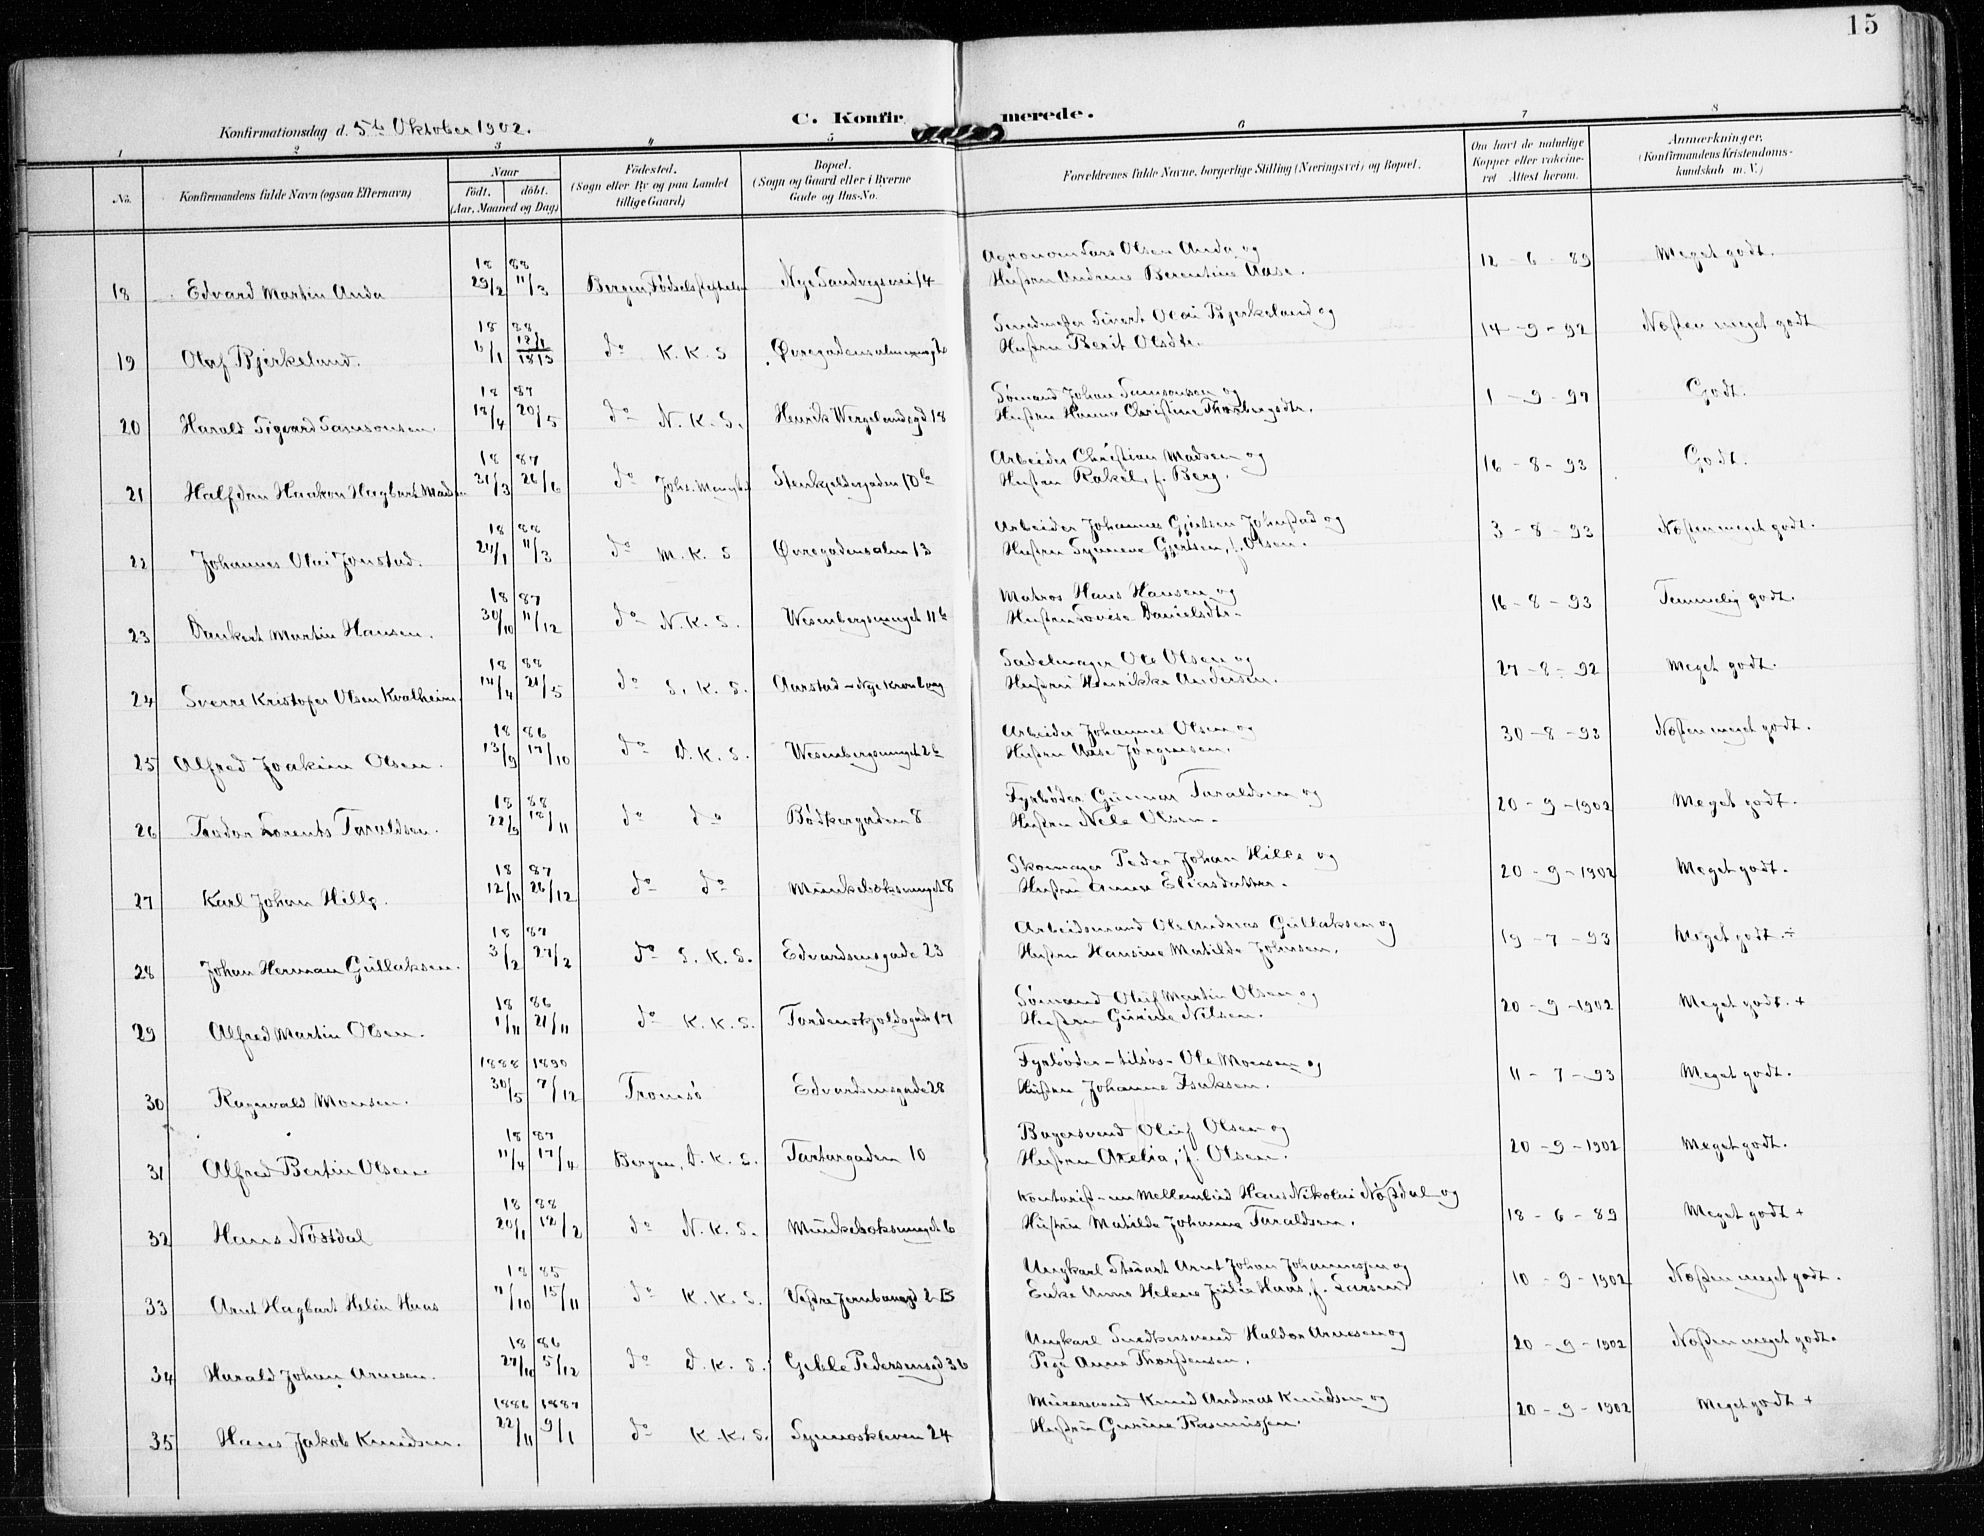 15
C. Konfirmerede.
Konfirmationsdag d. 5te Oktober 1902.
1 2 3 4 5 6 7 8
No.
Konfirmandens fulde Navn (ogsaa Efternavn)
Naar
födt. döbt.
(Aar, Maaned og Dag)
Födested.
(Sogn eller By og paa Landet
tillige Gaard)
Bopæl.
(Sogn og Gaard eller i Byerne
Gade og Hus-No.
Forældrenes fulde Navne, borgerlige Stilling (Næringsvei) og Bopæl.
Om havt de naturlige
Kopper eller vakcine-
ret Attest herom.
Anmærkninger.
(Konfirmandens Kristendoms-
kundskab m. V.)
18 Edvard Martin Anda 18 88 29/2 11/3 Bergen, Nye Sandvigsvei 14 Agronom Lars Olsen Anda og 12-6-89 Meget godt.
Hustru Andrine Berentine Aase.
19 Olaf Bjerkeland. 18 88 6/1 do K. K. S Sivert Olai Bjerkeland og 14-9-92 Næsten meget godt
Hustru Berit Olsdtr.
20 Harald Sigvard Samsonsen. 18 87 18/4 20/5 do N. K. S. Henrik Wergelandsgd 18 Sømand Johan Samsonsen og 1-9-97 Godt.
Hustru Hanna Christine Thorbergsdtr.
21 Halfdan Haakon Hagbart Madsen 18 87 31/3 26/6 do Johs. Stenkjeldergaden 10b Arbeider Christian Madsen og 16-8-93 Godt.
Hustru Rakel, f. Berg.
22 Johannes Olai Jonstad. 18 88 24/1 11/3 do M. K. S Øvregadensalm 13 Arbeider Johannes Gjertsen Johnstad og 3-8-93 Næsten meget godt.
Hustru Synneve Gjertsen, f. Olsen.
23 Dankert Martin Hansen. 18 87 30/10 11/12 do N. K. S. Wesenbergsmuget 11b Matros Hans Hansen og 16-8-93 Temmelig godt.
Hustru Lovise Danielsdtr.
24 Sverre Kristofer Olsen Kvalheim. 18 88 14/4 21/5 do S. K. S. Aarstad - Nye Kronborg Sadelmager Ole Olsen og 27-8-92 Meget godt.
Hustru Henrikke Andersen.
25 Alfred Joakim Olsen. 18 86 13/9 17/10 do D. K. S. Wesenbergsmuget 2b Arbeider Johannes Olsen og 30-8-93 Næsten meget godt.
Hustru Aase Jørgensen.
26 Teodor Lorents Taraldsen. 18 88 22/9 18/11 do do Bødkergaden 8 Fyrbøder Gunnar Taraldsen og 20-9-1902 Meget godt.
Hustru Nele Olsen.
27 Karl Johan Hille. 18 87 12/11 26/12 do do Munkebotsmuget 8 Skomager Peder Johan Hille og 20-9-1902 Meget godt.
Hustru Anna Eliasdatter.
28 Johan Herman Gullaksen. 18 87 3/2 27/2 do S. K. S. Edvardsensgade 23 Arbeidsmand Ole Andreas Gullaksen og 19-7-93 Meget godt. ÷
Hustru Hansine Matilde Johnsen.
29 Alfred Martin Olsen. 18 86 1/11 21/11 do K. K. S. Tordenskjoldsgade 17 Sømand Oluf Martin Olsen og 20-9-1902 Meget godt. +
Hustru Gurine Nilsen.
30 Ragnvald Monsen. 1888 1890 30/5 7/12 Tromsö Edvardsensgade 28 Fyrbøder - tilsøs - Ole Monsen og 11-7-93 Meget godt.
Hustru Johanna Isaksen.
31 Alfred Bertin Olsen. 18 87 11/4 17/4 Bergen, D. K. S. Tartargaden 10 Bagersvend Oluf Olsen og 20-9-1902 Meget godt.
Hustru Axelia, f. Olsen.
32 Hans Nöstdal 18 88 20/1 12/2 do N. K. S. Munkebotsmuget 6 Kontorist - Hans Nikolai Nøstdal og 18-6-89 Meget godt +
Hustru Matilde Johanna Taraldsen.
33 Arnt Hagbart Helin Haas 18 85 11/10 15/11 do K. K. S. Vestre Jernbanegd 2 B Ungkarl Stuert Arnt Johan Johannessen og 10-9-1902 Næsten meget godt.
Enke Anna Helene Julie Haas, f. Larsen
34 Harald Johan Arnesen. 18 86 27/10 5/12 do D. K. S. Geble Pedersensgd 36 Ungkarl Snedkersvend Haldor Arnesen og 20-9-1902 Næsten meget godt.
Pige Anna Thorstensen.
35 Hans Jakob Knudsen. 1886 1887 22/11 9/1 do K. K. S. Synneskleven 24 Murersvend Knud Andreas Knudsen og 20-9-1902 Meget godt +
Hustru Gurine Rasmussen.